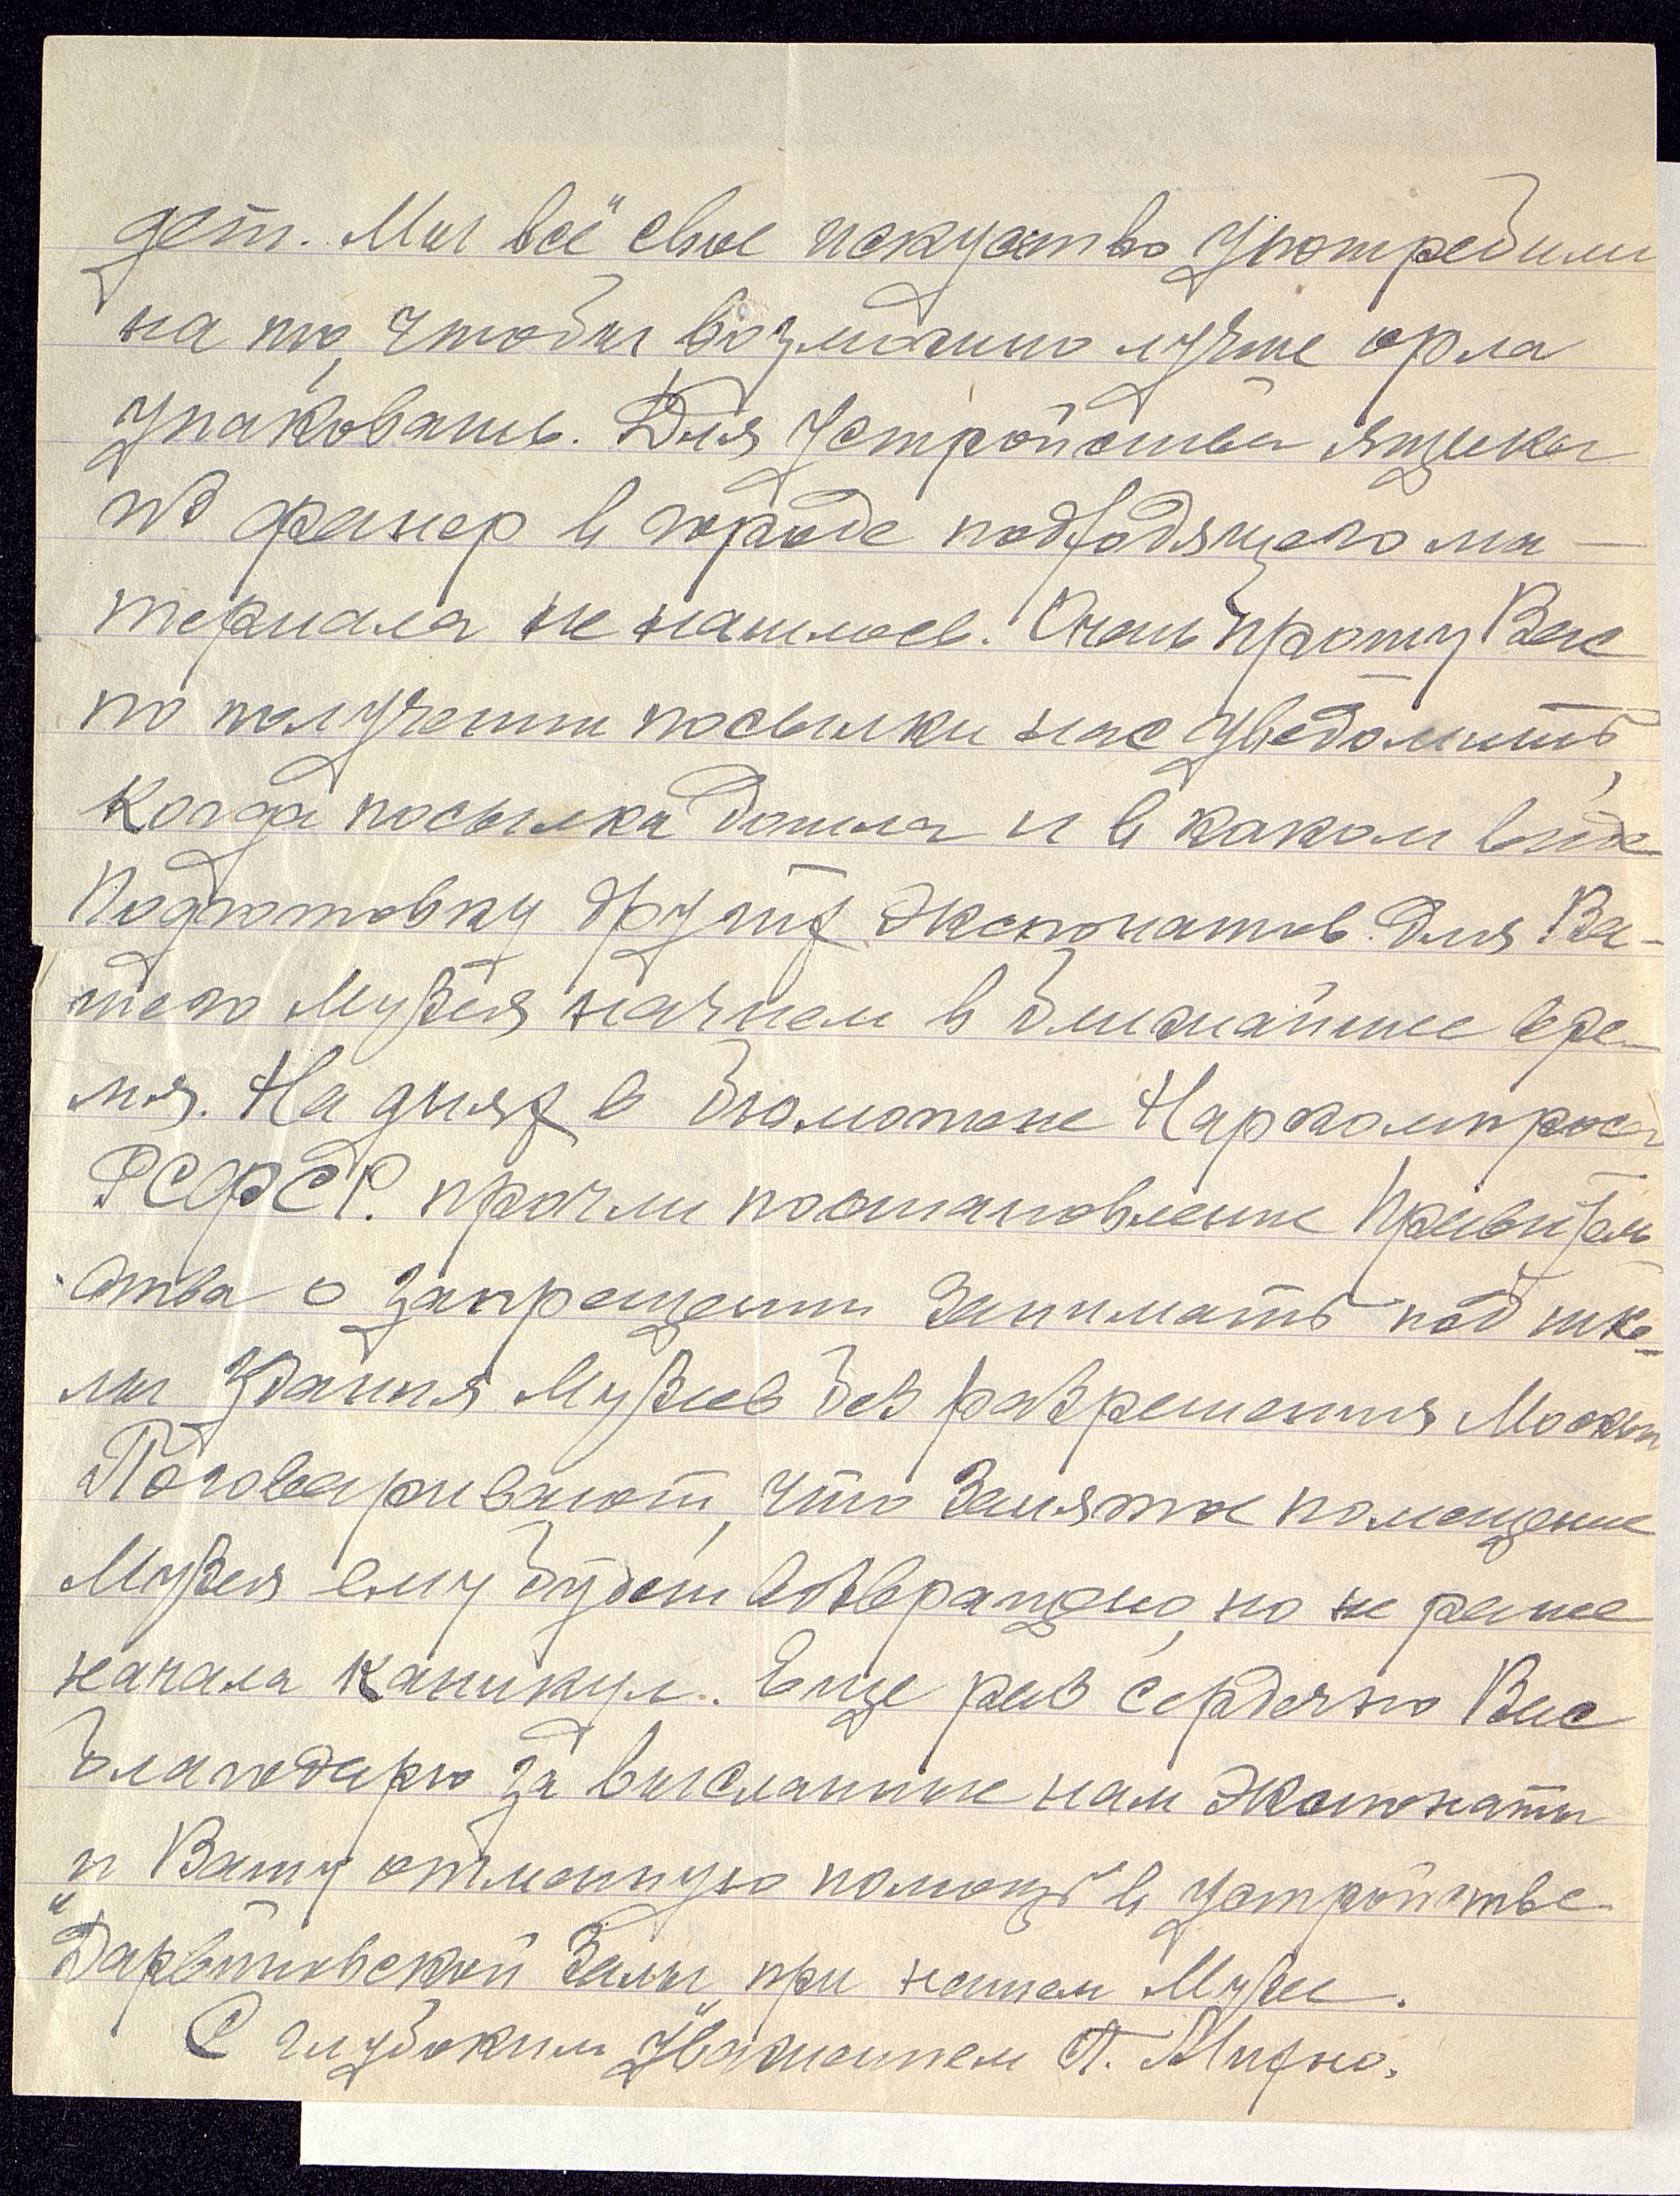 дет. Мы всё свое искуство употребили
на то, чтобы возможно лучше орла
упаковать. Для устройства ящика
из фанер в городе подходящего ма-
териала не нашлось. Очень прошу Вас
по получении посылки нас уведомить,
когда посылка дошла и в каком виде
Подготовку других экспонатов для Ва-
шего Музея начнем в ближайшее вре-
мя. На днях в бюлютене Наркомпроса
РСФСР. прочли постановление Правитель
ства о запрещении занимать под шко-
лы здания Музеев без разрешения Москвы
Поговаривают, что занятое помещение
Музея ему будет возвращено, но не ранее
начала каникул. Еще раз сердечно Вас
благодарю за высланные нам экспонаты
и Вашу отменную помощь в устройстве
"Дарвиновской Залы" при нашем Музее.
С глубоким уважением П.